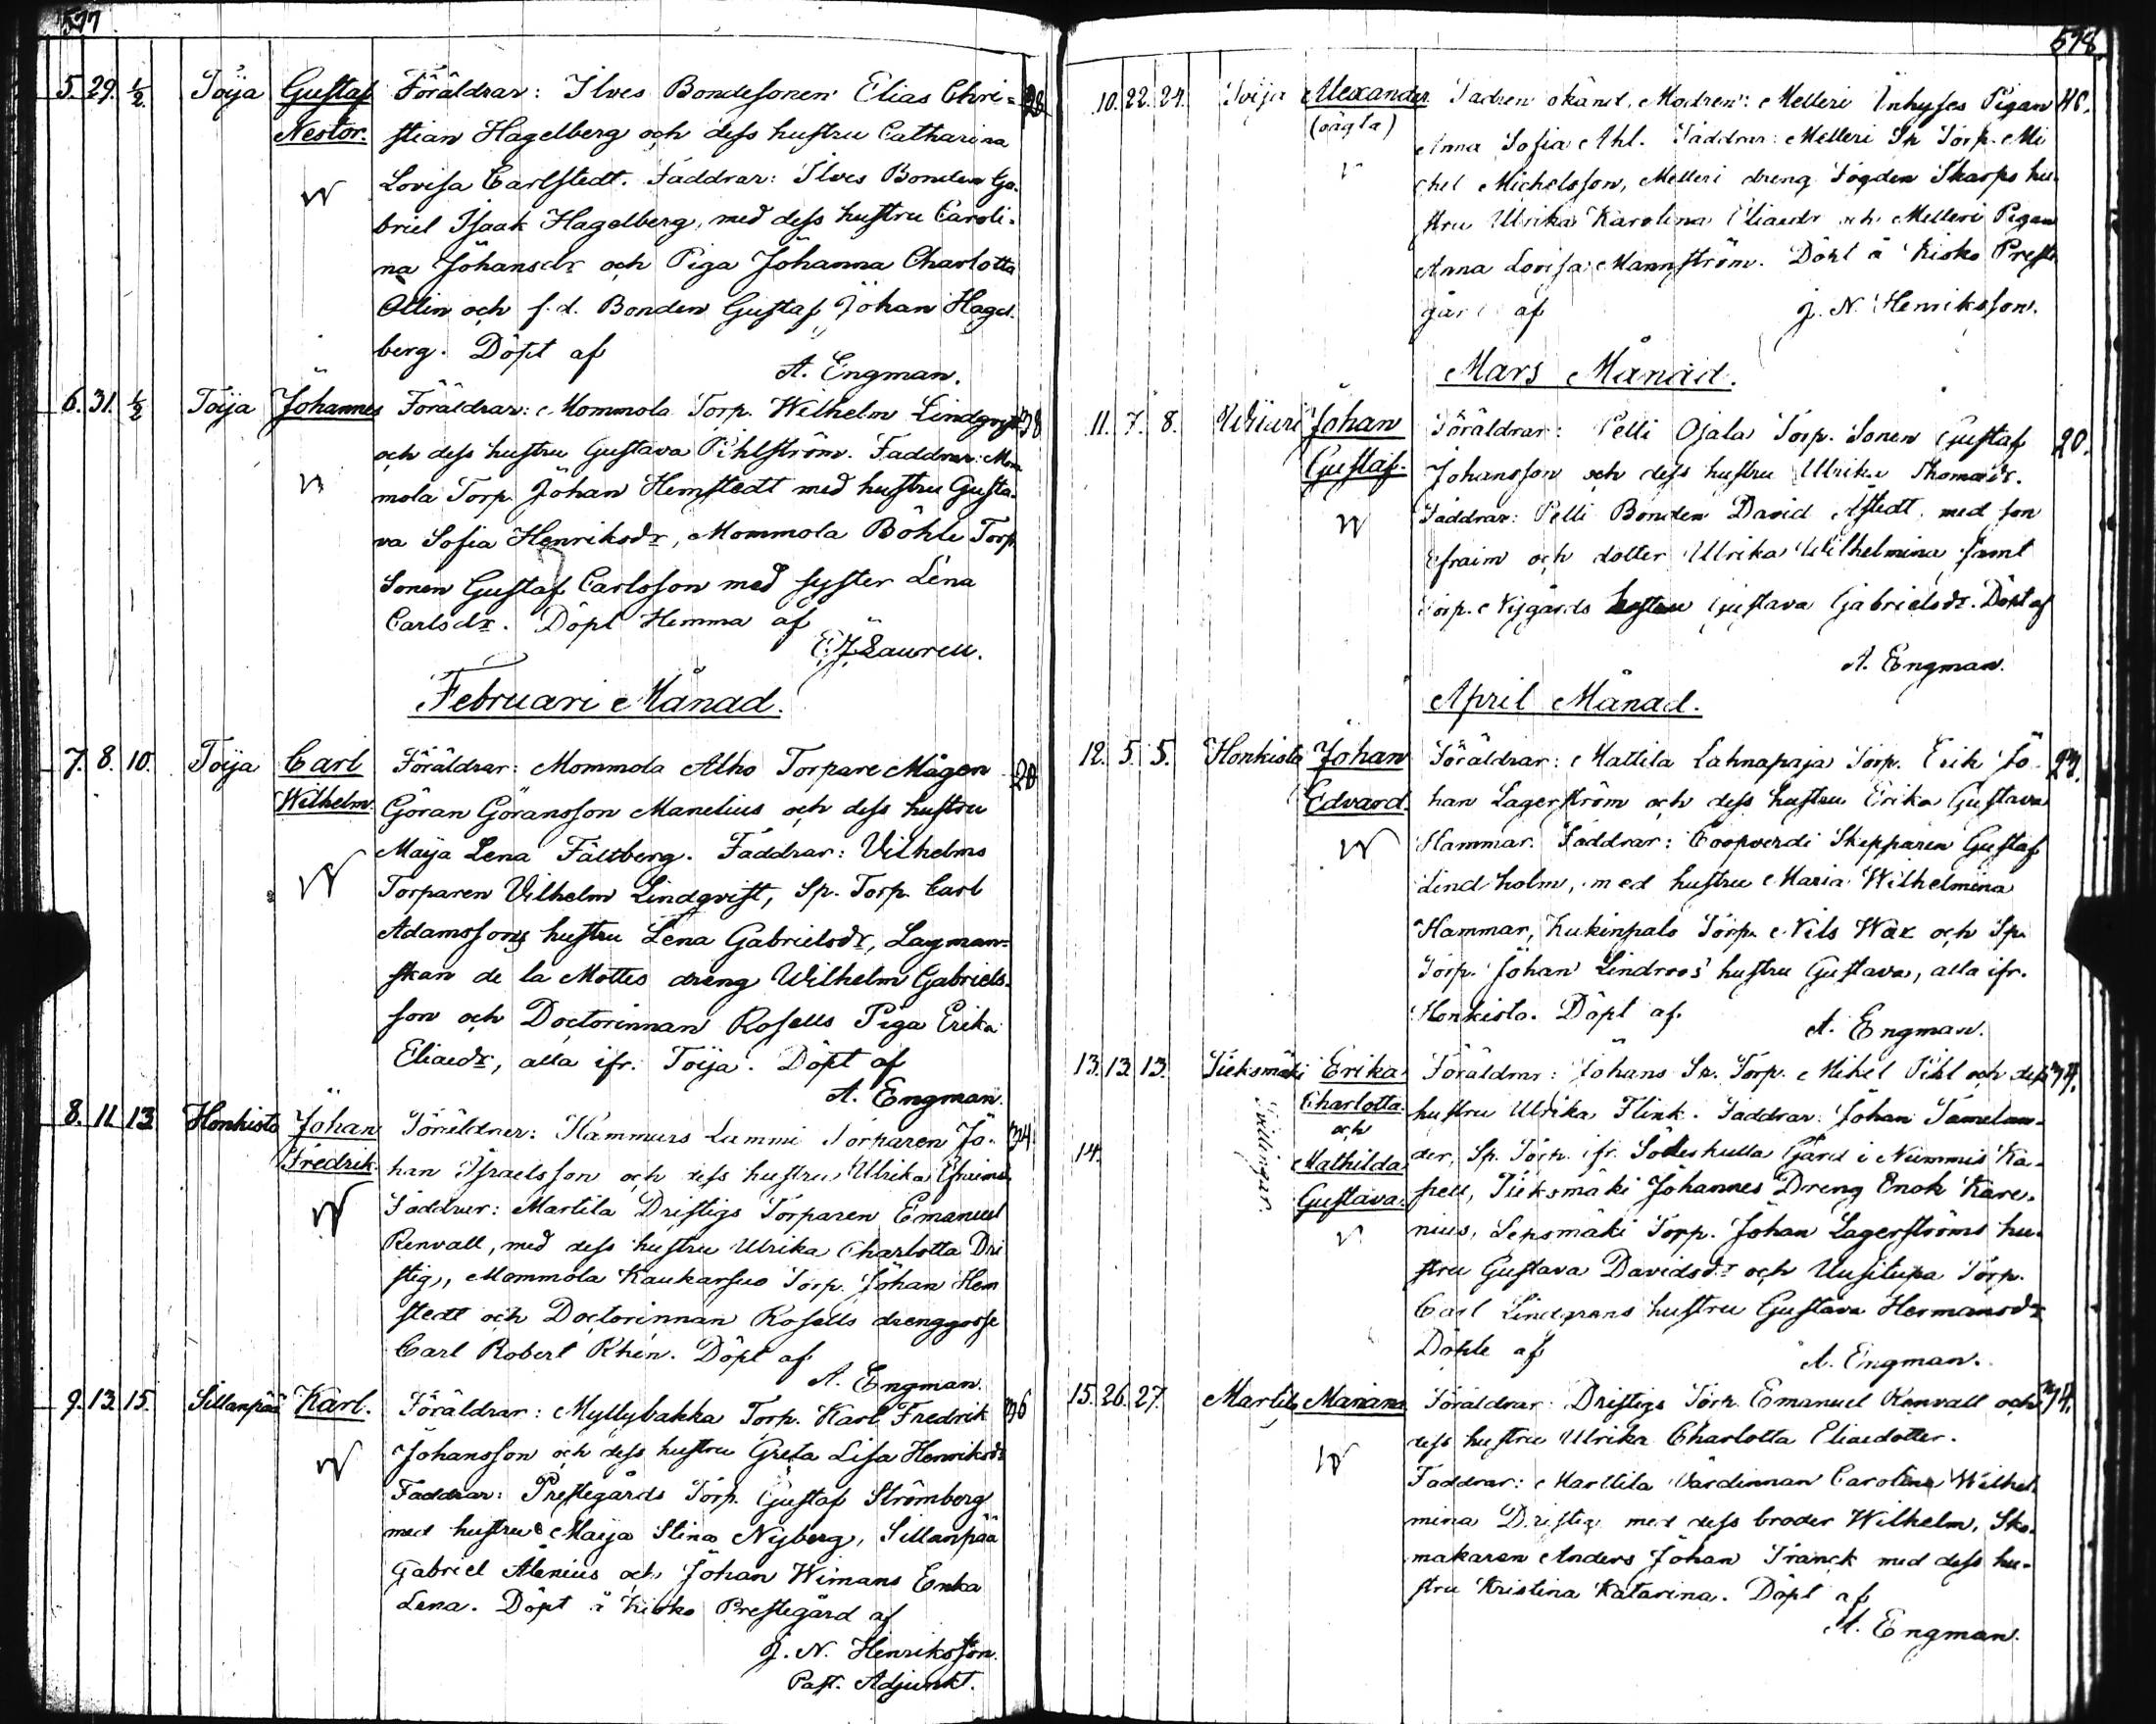 577
5. 29. 1/2. Toija Gustaf Föräldrar: Ilves Bondesonen Elias Chri= 28
Nestor. stian Hagelberg och dess hustru Catharina
Lovisa Carlstedt. Faddrar: Ilves Bonden Ga-
briel Isaak Hagelberg, med dess hustru Caroli-
na Johansdr och Piga Johanna Charlotta
och f. d. Bonden Gustaf Johan Hagel-
berg. Döpt af
A. Engman.
6. 31. 1/2 Toija Johannes Föräldrar: Mommola Torp. Wilhelm Lindqvist 38
och dess hustru Gustava Pihlström. Faddrar: Mom
mola Torp. Johan Hemstedt med hustru Gusta-
va Sofia Henriksdr, Mommola Böhle Torp
Sonen Gustaf Carlsson med syster Lena
Carlsdr. Döpt Hemma af
E. J. Lauren.
Februari Månad.
7. 8. 10. Toija Carl Föräldrar: Mommola Alho Torpare Mågen 28
Wilhelm. Göran Göransson Manelius och dess hustru
Maija Lena Fältberg. Faddrar: Vilhelms
Torparen Vilhelm Lindqvist, Sp. Torp. Carl
Adamssons hustru Lena Gabrielsdr, Lagman-
skan de la Mottes dräng Wilhelm Gabriels-
son och Doctorinnan Rosells Piga Erika
Eliaedr, alla ifr. Toija. Döpt af
A. Engman.
8. 11. 13 Honkisto Johan Föräldrar: Hammars Lammi Torparen Jo- 34
Fredrik. han Israelsson och dess hustru Ulrika Efraimsd.
Faddrar: Martila Dristigs Torparen Emanuel
Renvall, med dess hustru Ulrika Charlotta Dri
stig, Mommola Kaukarsuo Torp. Johan Hem
stedt och Doctorinnan Rosells drenggosse
Carl Robert Rhén. Döpt af
A. Engman.
9. 13. 15. Sillanpää Karl. Föräldrar: Myllybakka Torp. Karl Fredrik 36
Johansson och dess hustru Greta Lisa Henriksdr
Faddrar: Prestegårds Torp. Gustaf Strömberg
med hustru Maija Stina Nyberg, Sillanpää
Gabriel Alenius och Johan Wimans Enka
Lena. Döpt å Kisko Prestegård af
J. N. Henriksson.
Past. Adjunkt.
578
10. 22. 24. Toija Alexander Fadren okänd. Modren: Melleri Inhyses Pigan
(oägta) Anna Sofia Ahl. Faddrar: Melleri Sp Torp. Mi
chel Michelsson, Melleri dreng Fogden Skarps hu-
stru Ulrika Karolina Eliaedr och Melleri Pigan
Anna Lovisa Mannström. Döpt å Kisko Preste
gård af J. N. Henriksson.
Mars Månad.
11. 7. 8. Wiiari Johan Föräldrar: Pelli Ojala Torp. Sonen Gustaf 20.
Gustaf. Johansson och dess hustru Ulrika Thomasdr.
Faddrar: Pelli Bonden David Alstedt med son
Efraim och dotter Ulrika Wilhelmina, samt
Torp. Nygårds hustru Gustava Gabrielsdr. Döpt af
A. Engman.
April Månad.
12. 5. 5. Honkisto Johan Föräldrar: Mattila Lahnapaja Torp. Erik Jo-
Edvard. han Lagerström och dess hustru Erika Gustava
Hammar. Faddrar: Coopverdi Skepparen Gustaf
Lindholm, med hustru Maria Wilhelmina
Hammar, Kukinpalo Torp. Nils Wax och Sp.
Torp. Johan Lindroos' hustru Gustava, alla ifr.
Honkisto. Döpt af. A. Engman.
13. 13. 13. Tieksmäki Erika Föräldrar: Johans Sp. Torp. Mikel Pihl och dess 34.
Charlotta hustru Ulrika Flink. Faddrar: Johan Tamelan-
och
14. Tvillingar. Mathilda der, Sp. Torp. ifr. Gård i Nummis Ka-
Gustava. pell, Tieksmäki Johannes Dreng Enok Kare-
nius, Lepsmäki Torp. Johan Lagerströms hu-
stru Gustava Davidsdr och Uusitupa Torp.
Carl Lindgrens hustru Gustava Hermansdr
Döpte af A. Engman.
15. 26. 27. Martila Mariana Föräldrar: Dristigs Torp. Emanuel Renvall och 34.
dess hustru Ulrika Charlotta Eliaedotter.
Faddrar: Marttila Värdinnan Carolina Wilhel-
mina Dristig med dess broder Wilhelm, Sko-
makaren Anders Johan Franck med dess hu-
stru Kristina Katarina. Döpt af
A. Engman.